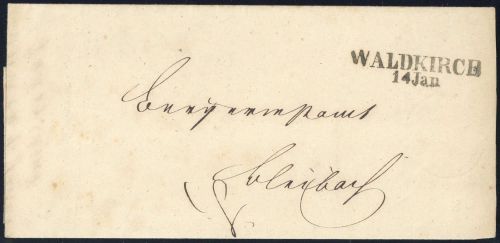 WALDKIRCH
14 Jan
Bürgermstamt
Bleibach